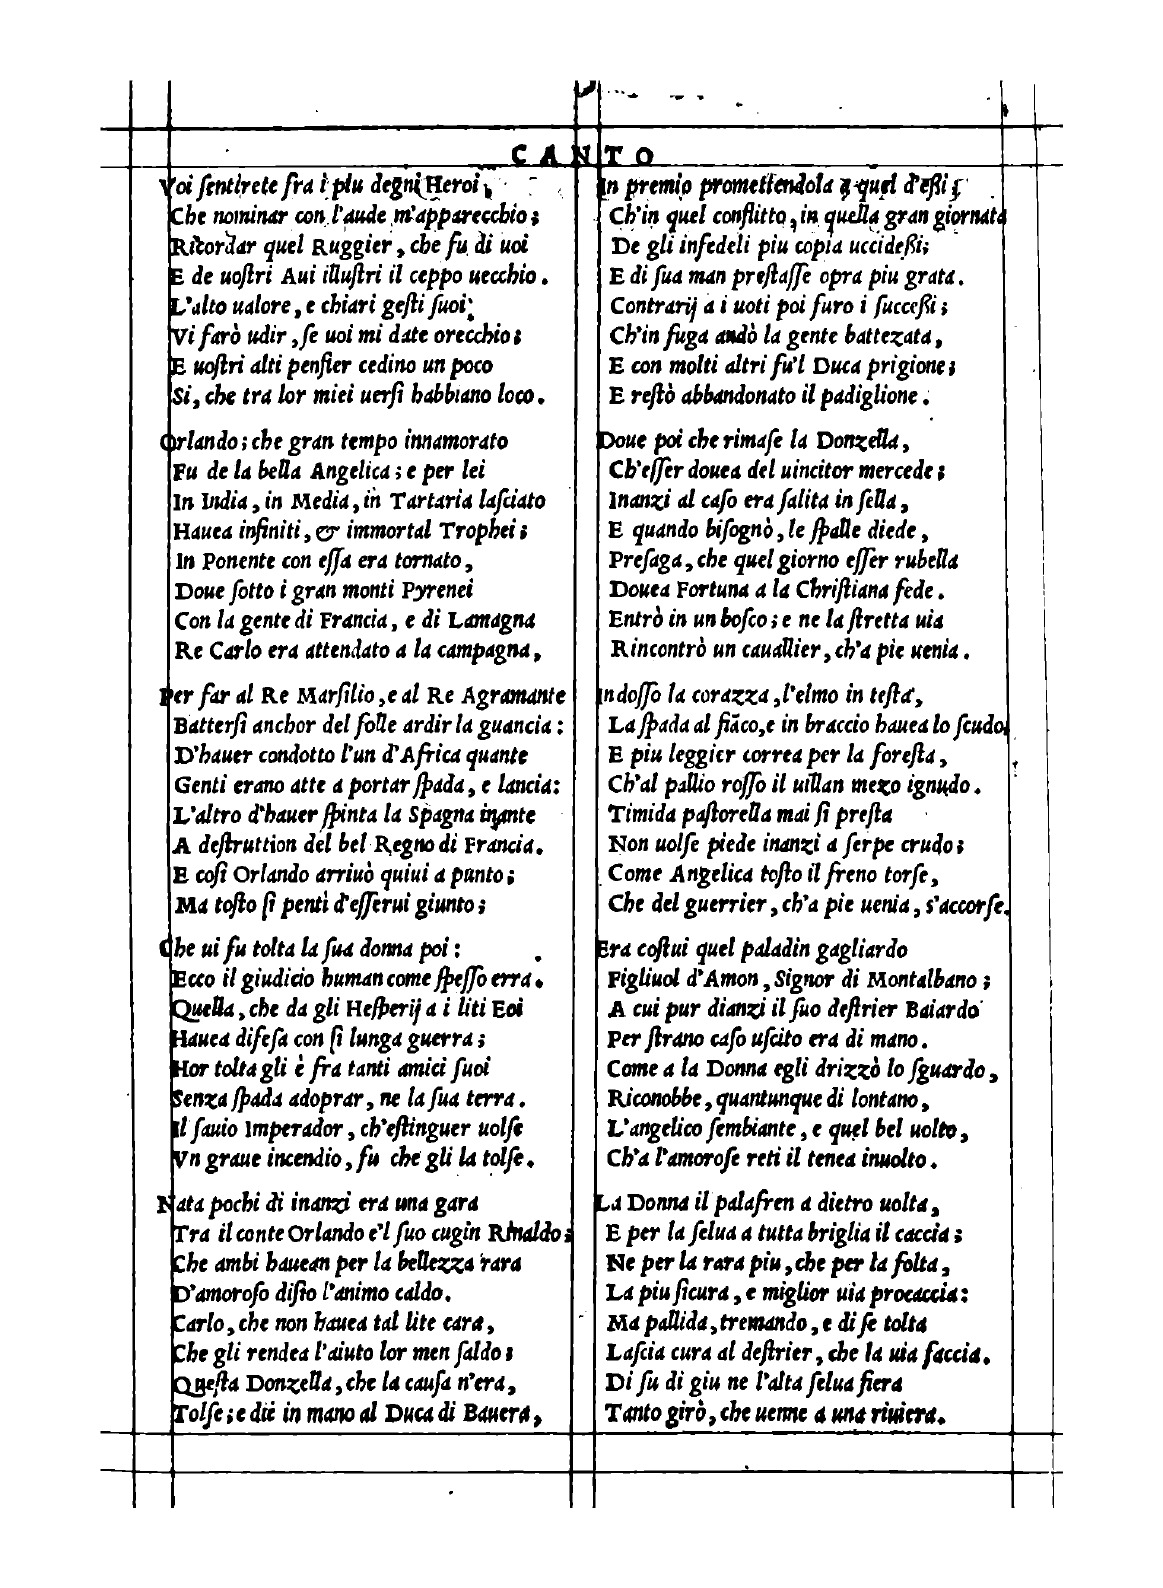 CANTO
Voi ſentirete fra i piu degni Heroi,
Che nominar con laude m'apparecchio;
Ricordar quel Ruggier, che fu di uoi
E de uoſtri Aui illuſtri il ceppo uecchio.
L'alto ualore, e chiari geſti ſuoi
Vi farò udir, ſe uoi mi date orecchio;
E uoſtri alti penſier cedino un poco
Si, che tra lor miei uerſi habbiano loco.
Orlando; che gran tempo innamorato
Fu de la bella Angelica; e per lei
In India, in Media, in Tartaria laſciato
Hauea infiniti, & immortal Trophei;
In Ponente con eſſa era tornato,
Doue ſotto i gran monti Pyrenei
Con la gente di Francia, e di Lamagna
Re Carlo era attendato a la campagna,
Per far al Re Marſilio, e al Re Agramante
Batterſi anchor del folle ardir la guancia:
D'hauer condotto l'un d'Africa quante
Genti erano atte a portar ſpada, e lancia:
L'altro d'hauer ſpinta la Spagna inante
A deſtruttion del bel Regno di Francia.
E coſi Orlando arriuò quiui a punto;
Ma toſto ſi pentì d'eſſerui giunto;
Che ui fu tolta la ſua donna poi:
Ecco il giudicio human come ſpeſſo erra.
Quella, che da gli Heſperij a i liti Eoi
Hauea difeſa con ſi lunga guerra;
Hor tolta gli è fra tanti amici ſuoi
Senza ſpada adoprar, ne la ſua terra.
Il ſauio Imperador, ch'eſtinguer uolſe
Vn graue incendio, fu che gli la tolſe.
Nata pochi di inanzi era una gara
Tra il conte Orlando e'l ſuo cugin Rinaldo;
Che ambi hauean per la bellezza rara
D'amoroſo diſio l'animo caldo.
Carlo, che non hauea tal lite cara,
Che gli rendea l'aiuto lor men ſaldo;
Queſta Donzella, che la cauſa n'era,
Tolſe; e diè in mano al Duca di Bauera,
In premio promettendola a quel d'eßi;
Ch'in quel conflitto, in quella gran giornata
De gli infedeli piu copia uccideßi;
E di ſua man preſtaſſe opra piu grata.
Contrarij a i uoti poi furo i ſucceßi;
Ch'in fuga andò la gente battezata,
E con molti altri fu'l Duca prigione;
E reſtò abbandonato il padiglione.
Doue poi che rimaſe la Donzella,
Ch'eſſer douea del uincitor mercede;
Inanzi al caſo era ſalita in ſella,
E quando biſognò, le ſpalle diede,
Preſaga, che quel giorno eſſer rubella
Douea Fortuna a la Chriſtiana fede.
Entrò in un boſco; e ne la ſtretta uia
Rincontrò un cauallier, ch'a piè uenia.
Indoſſo la corazza, l'elmo in teſta,
La ſpada al fiāco, e in braccio hauea lo ſcudo,
E piu leggier correa per la foreſta,
Ch'al pallio roſſo il uillan mezo ignudo.
Timida paſtorella mai ſi preſta
Non uolſe piede inanzi a ſerpe crudo;
Come Angelica toſto il freno torſe,
Che del guerrier, ch'a pie uenia, s'accorſe.
Era coſtui quel paladin gagliardo
Figliuol d'Amon, Signor di Montalbano;
A cui pur dianzi il ſuo deſtrier Baiardo
Per ſtrano caſo uſcito era di mano.
Come a la Donna egli drizzò lo ſguardo,
Riconobbe, quantunque di lontano,
L'angelico ſembiante, e quel bel uolto,
Ch'a l'amoroſe reti il tenea inuolto.
La Donna il palafren a dietro uolta,
E per la ſelua a tutta briglia il caccia;
Ne per la rara piu, che per la folta,
La piu ſicura, e miglior uia procaccia:
Ma pallida, tremando, e di ſe tolta
Laſcia cura al deſtrier, che la uia faccia.
Di ſu di giu ne l'alta ſelua fiera
Tanto girò, che uenne a una riuiera.